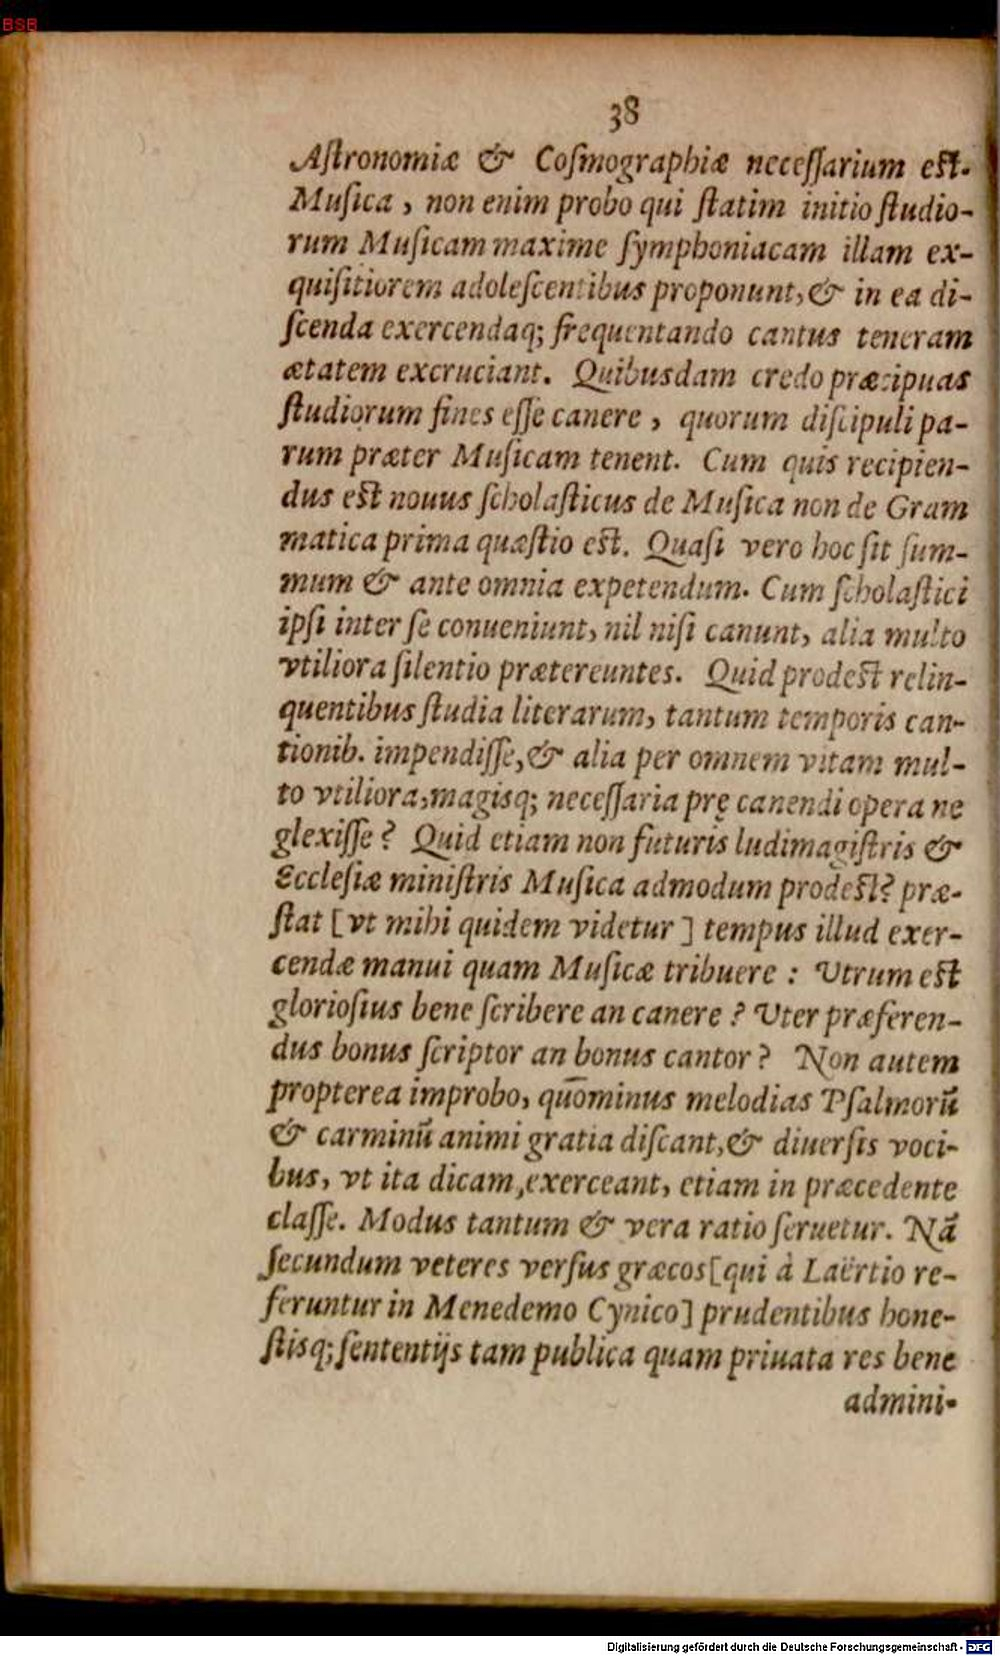 BSB
38
Aſtronomiæ & Coſmographiæ neceſſarium eſt.
Muſica, non enim probo qui ſtatim initio ſtudio-
rum Muſicam maxime ſymphoniacam illam ex-
quiſitiorem adoleſcentibus proponunt, & in ea di-
ſcenda exercendaq; frequentando cantus teneram
ætatem excruciant. Quibusdam credo præcipuas
ſtudiorum fines eſſe canere, quorum diſcipuli pa-
rum præter Muſicam tenent. Cum quis recipien-
dus eſt nouus ſcholaſticus de Muſica non de Gram
matica prima quæſtio eſt. Quaſi vero hoc ſit ſum-
mum & ante omnia expetendum. Cum ſcholaſtici
ipſi inter ſe conueniunt, nil niſi canunt, alia multo
vtiliora ſilentio prætereuntes. Quid prodeſt relin-
quentibus ſtudia literarum, tantum temporis can-
tionib. impendiſſe, & alia per omnem vitam mul-
to vtiliora, magisq; neceſſaria prę canendi opera ne
glexiſſe? Quid etiam non futuris ludimagiſtris &
Eccleſiæ miniſtris Muſica admodum prodeſt? præ-
ſtat [vt mihi quidem videtur] tempus illud exer-
cendæ manui quam Muſicæ tribuere: Utrum eſt
glorioſius bene ſcribere an canere? Uter præferen-
dus bonus ſcriptor an bonus cantor? Non autem
propterea improbo, quōminus melodias Pſalmorū
& carminū animi gratia diſcant, & diuerſis voci-
bus, vt ita dicam, exerceant, etiam in præcedente
claſſe. Modus tantum & vera ratio ſeruetur. Nā
ſecundum veteres verſus græcos [qui à Laërtio re-
feruntur in Menedemo Cynico] prudentibus hone-
ſtisq; ſententijs tam publica quam priuata res bene
admini-
Digitalisierung gefördert durch die Deutsche Forschungsgemeinschaft - DFG